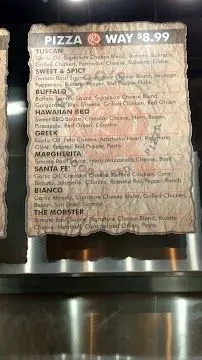 PIZZA R WAY $8.99
TUSCAN
Garlic Oil, Signature Cheese Blend, Tomato, Spinach,
Grilled Chicken, Parmesan Cheese, Balsamic Glaze
SWEET & SPICY
Tomato Basil Signature Cheese Blend, Sausage,
Pepperoni, Banana Pepper, Red Chili Pepper
BUFFALO
Signature Cheese Blend,
Gorgonzola Bleu Cheese, Grilled Chicken, Red Onion
HAWAIIAN BBQ
Sweet BBQ Sauce, Cheddar Cheese, Ham, Bacon,
Pineapple, Red Onion, Cilantro
GREEK
Garlic Oil, Artichoke Heart, Kalamata
Olive, Roasted Red Pepper, Pesto
MARGHERITA
Tomato Basil Sauce, Fresh Mozzarella Cheese, Basil
SANTA FE
Garlic Oil, Cheddar Cheese, Grilled Chicken, Corn,
Tomato, Jalapeno, Cilantro, Roasted Red Pepper Ranch
BIANCO
Garlic Alfredo, Signature Cheese Blend, Grilled Chicken,
Bacon, Sun Dried Tomato
THE MOBSTER
Tomato Basil Sauce, Signature Cheese Blend, Ricotta
Cheese, Meatball, Caramelized Onion, Pesto